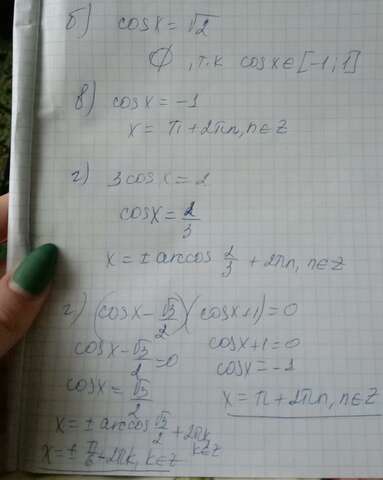 б) cosx = √2
∅, т.к cosx∈[-1;1]
в) cosx = -1
x = π + 2πn, n∈Z
г) 3cosx = 2
cosx = 2/3
x = ± arccos 2/3 + 2πn, n∈Z
г) (cosx - √3/2)(cosx+1) = 0
cosx - √3/2 = 0
cosx = √3/2
x = ± arccos √3/2 + 2πk, k∈Z
x = ± π/6 + 2πk, k∈Z
cosx+1 = 0
cosx = -1
x = π + 2πn, n∈Z